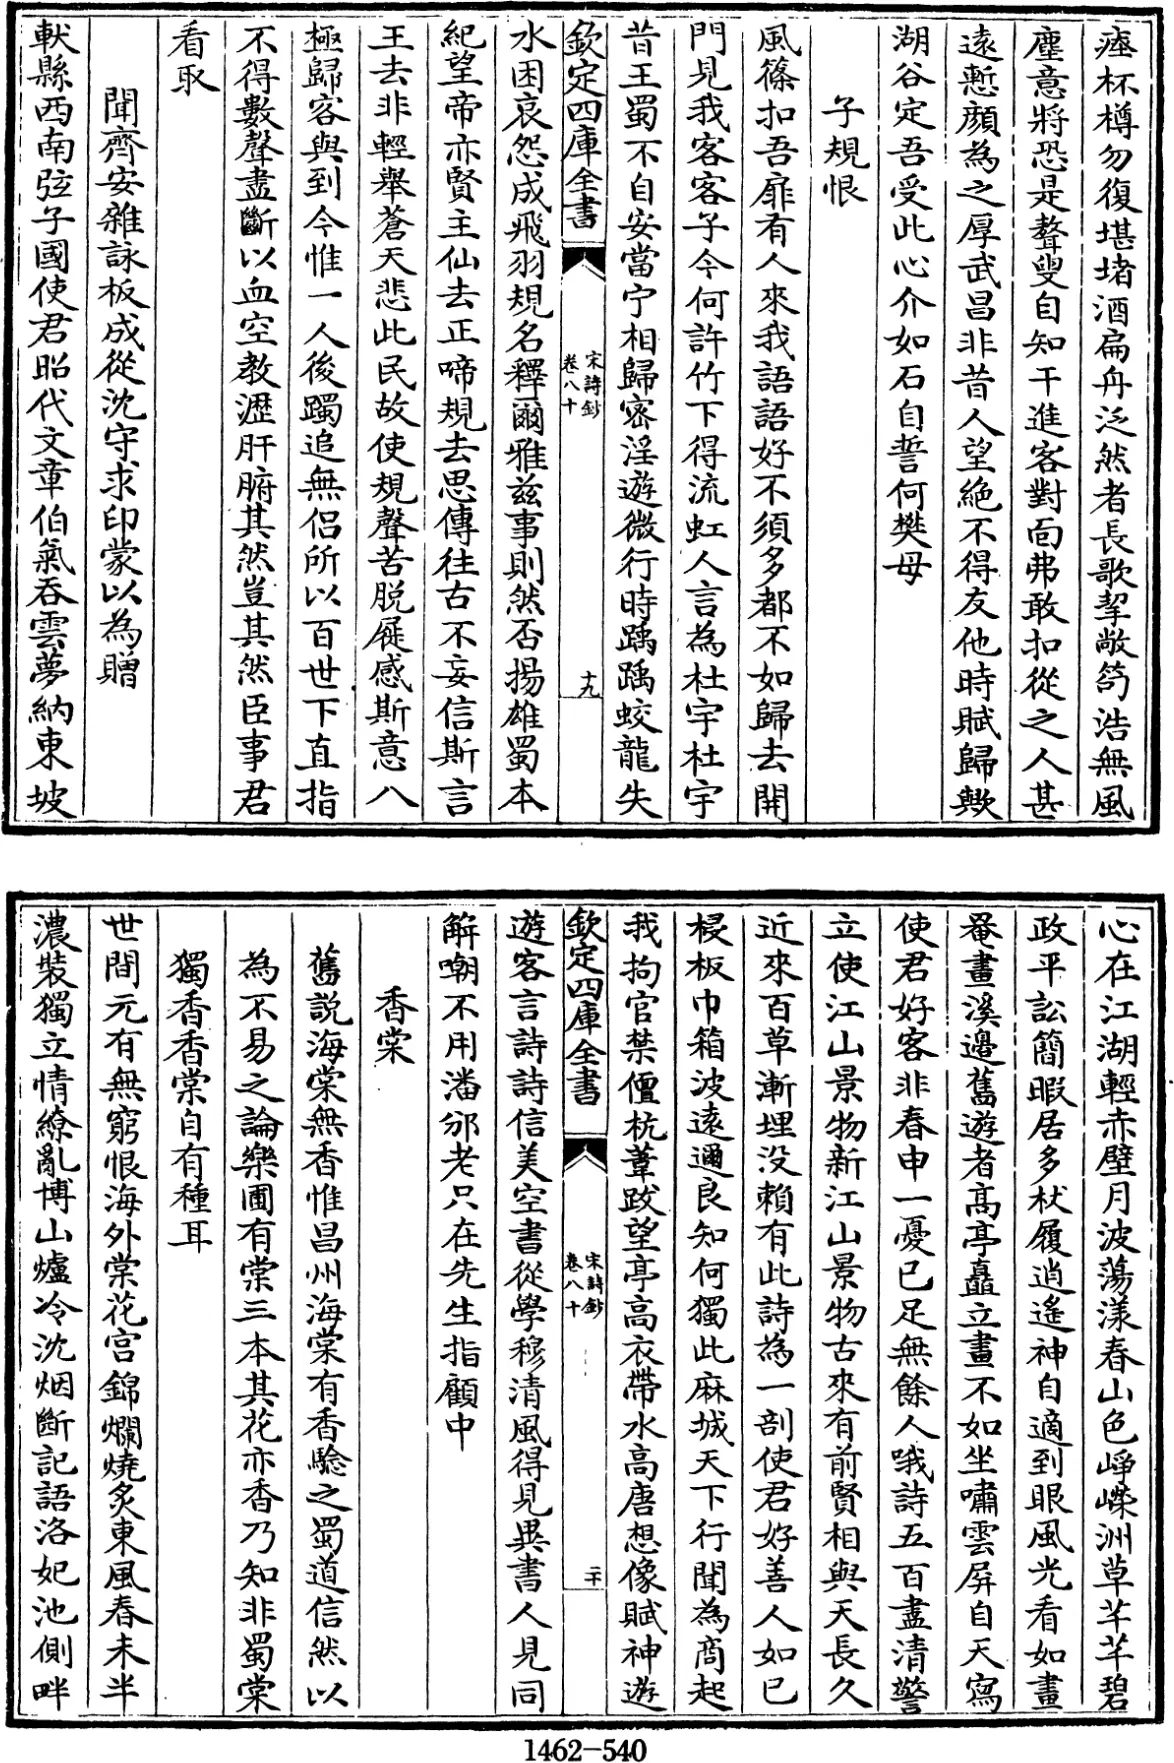 瘞杯樽勿復堪堵酒扁舟泛然者長歌挈敝笱浩無風
塵意將恐是聱叟自知干進客對面弗敢扣從之人甚
遠慙顔為之厚武昌非昔人望絶不得友他時賦歸歟
湖谷定吾受此心介如石自誓何樊母
子規恨
風篠扣吾扉有人來我語語好不須多都不如歸去開
門見我客客子今何許竹下得流虹人言為杜宇杜宇
昔王蜀不自安當宁相歸密淫遊微行時踽踽蛟龍失
欽定四庫全書
宋詩鈔
卷八十
十九
水困哀怨成飛羽規名釋爾雅兹事則然否揚雄蜀本
紀望帝亦賢主仙去正啼規去思傳往古不妄信斯言
王去非輕舉蒼天悲此民故使規聲苦脱屣感斯意八
極歸客與到今惟一人後躅追無侣所以百世下直指
不得數聲盡斷以血空教瀝肝腑其然豈其然臣事君
看取
聞齊安雜詠板成從沈守求印蒙以為贈
軑縣西南弦子國使君昭代文章伯氣吞雲夢納東坡
心在江湖輕赤壁月波蕩漾春山色崢嶸洲草芊芊碧
政平訟簡暇居多杖履逍遙神自適到眼風光看如畫
罨畫溪邊舊遊者高亭矗立畫不如坐嘯雲屏自天寫
使君好客非春申一憂已足無餘人哦詩五百盡清警
立使江山景物新江山景物古來有前賢相與天長久
近來百草漸埋没賴有此詩為一剖使君好善人如已
梫板巾箱波遠邇良知何獨此麻城天下行聞為商起
我拘官禁僵杭葦跂望亭高衣帶水高唐想像賦神遊
欽定四庫全書
宋詩鈔
卷八十
二十
遊客言詩詩信美空書從學穆清風得見異書人見同
解嘲不用潘邠老只在先生指顧中
香棠
舊説海棠無香惟昌州海棠有香驗之蜀道信然以
為不易之論樂圃有棠三本其花亦香乃知非蜀棠
獨香香棠自有種耳
世間元有無窮恨海外棠花宫錦爛燒炙東風春未半
濃裝獨立情繚亂博山爐冷沈烟斷記語洛妃池側畔
1462-540